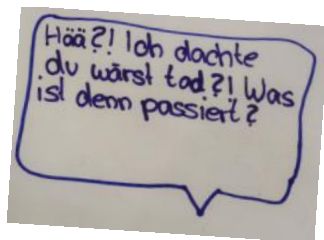 Hää?! Ich dachte
du wärst tod?! Was
ist denn passiert?